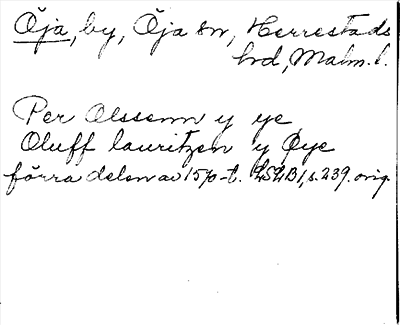 Öja, by, Öja sn, Herrestads
hrd, Malm. l.
Per Olssenn y ye
Oluff lauritzen y Øye
förra delen av 1570-t. LSLB1, s. 239. orig.